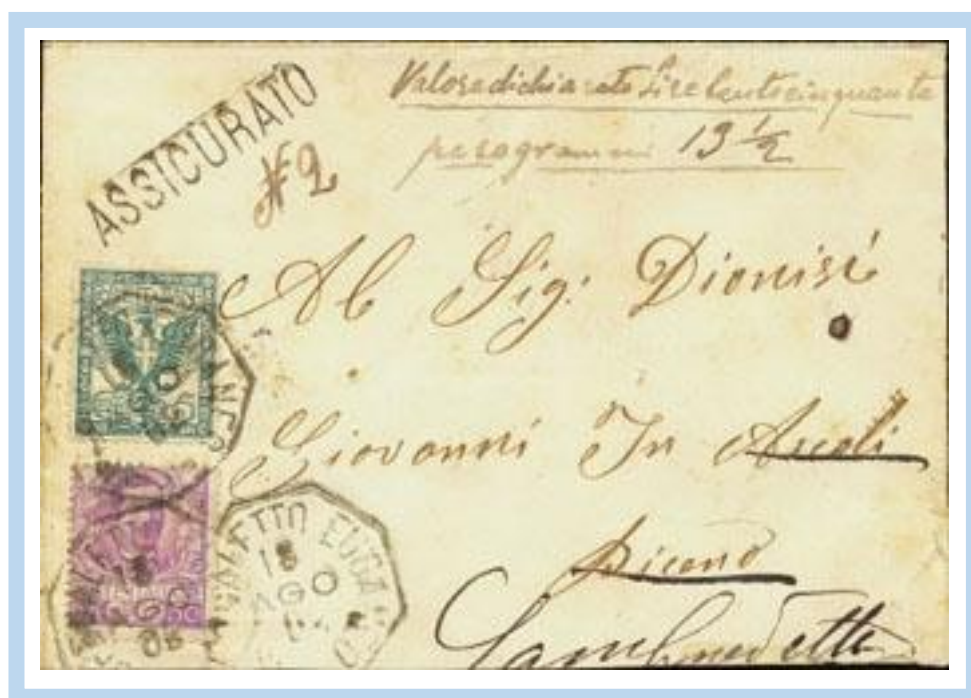 ASSICURATO
Valore dichiarato Lire Centocinquanta
peso grammi 13 1/2
N 2
Al Sig: Dionisi
Giovanni In Ascoli
Piceno
Sambenedetto
18
AGO
18
AGO